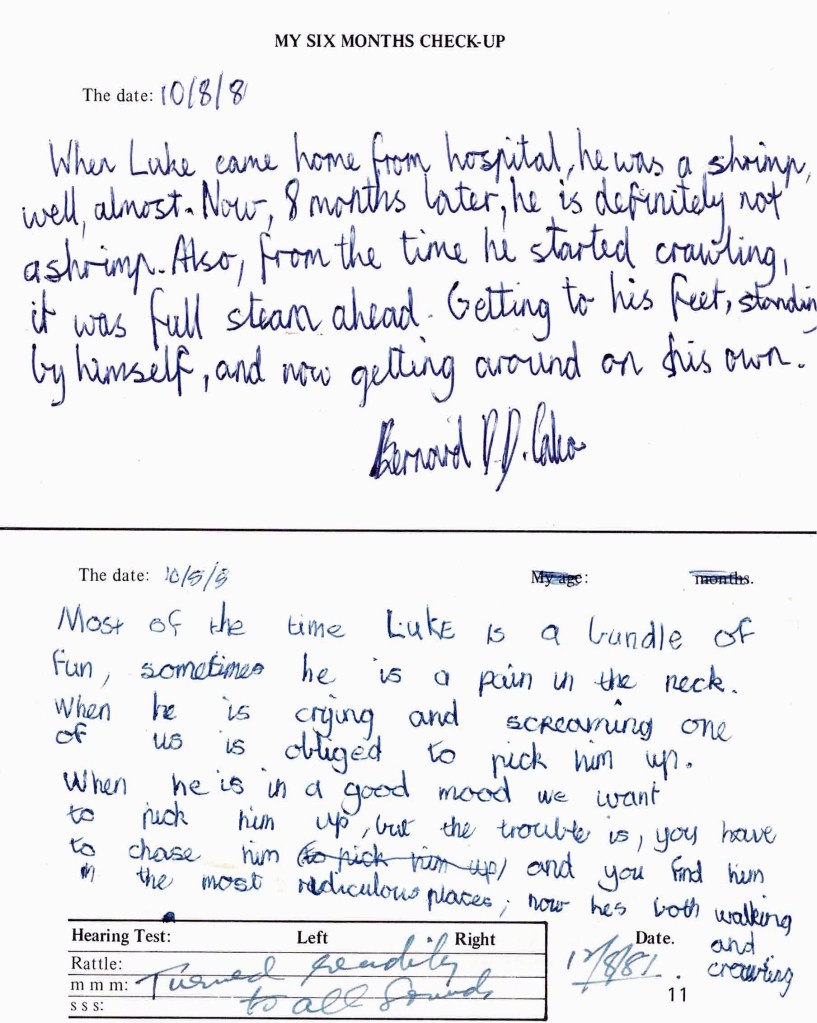 MY SIX MONTHS CHECK-UP
The date: 10/8/8
When Luke came home from hospital, he was a shrimp,
well, almost. Now, 8 months later, he is definitely not
a shrimp. Also, from the time he started crawling,
it was full steam ahead. Getting to his feet, standin
by himself, and now getting around on his own.
Bernard
The date: 10/8/8 My age: months.
Most of the time Luke is a bundle of
fun, sometimes he is a pain in the neck.
When he is crying and screaming one
of us is obliged to pick him up.
When he is in a good mood we want
to pick him up, but the trouble is, you have
to chase him (to pick him up) and you find him
in the most rediculous places, now hes both walking
and
crawling
Hearing Test: Left Right Date.
Rattle: Turned readily
m m m: to all sounds
s s s:
12/8/81.
11